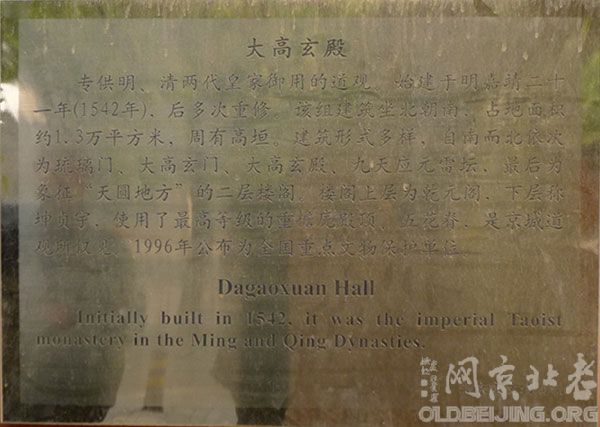 大高玄殿
专供明、清两代皇家御用的道观。始建于明嘉靖二十
一年(1542年)，后多次重修。该组建筑坐北朝南，占地面积
约1.3万平方米，周有高垣。建筑形式多样，自南而北依次
为琉璃门、大高玄门、大高玄殿、九天应元雷坛，最后为
象征“天圆地方”的二层楼阁。楼阁上层为乾元阁，下层称
坤贞宇，使用了最高等级的重檐庑殿顶，五花脊，是京城道
观所仅见。1996年公布为全国重点文物保护单位。
Dagaoxuan Hall
Initially built in 1542, it was the imperial Taoist
monastery in the Ming and Qing Dynasties.
老北京网
OLDBEIJING.ORG